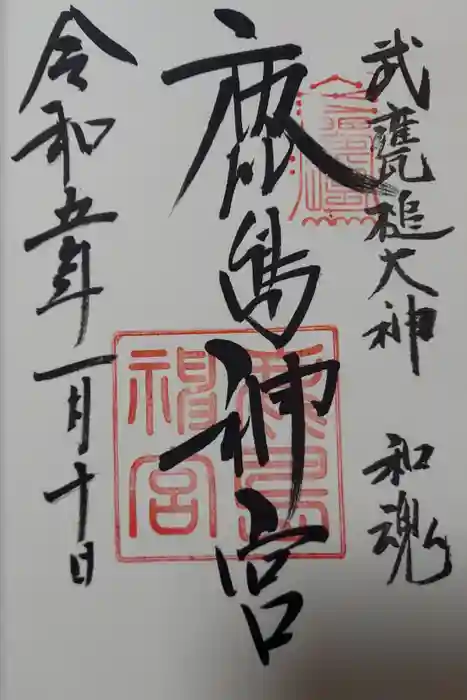 武甕槌大神 和魂
鹿島神宮
令和五年一月十日
鹿島神宮